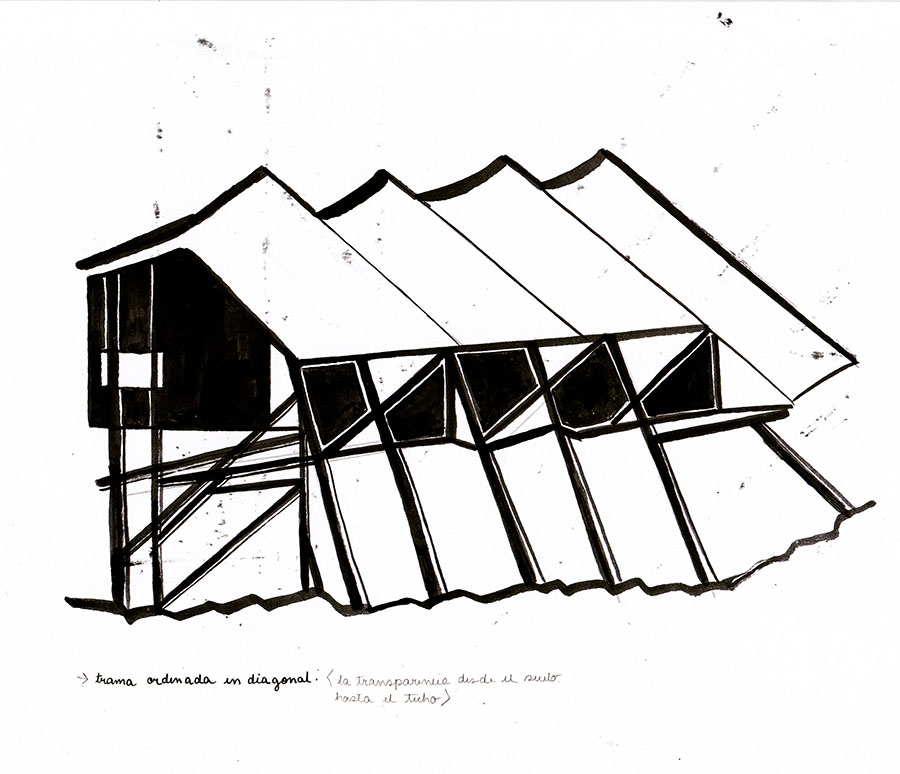 → trama ordenada en diagonal: <la transparencia desde el suelo
hasta el techo>